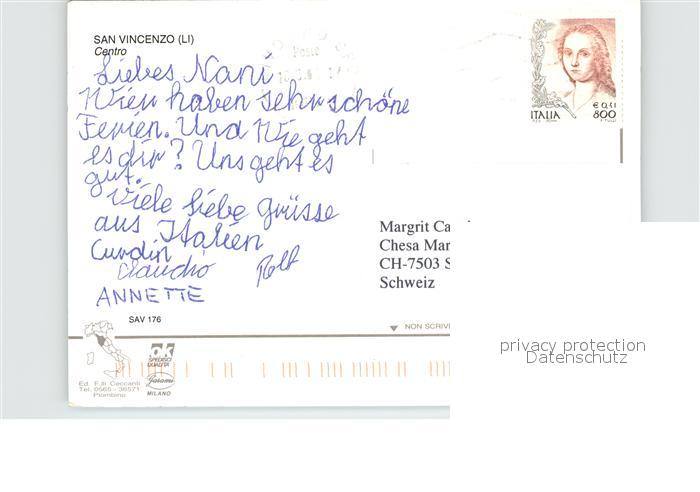 SAN VINCENZO (LI)
Centro
Liebes Nani
Wier haben sehr schöne
Ferien. Und Wie geht
es dir? Uns geht es
gut.
Viele liebe Grüsse
aus Italien
Curdin
Claudio Rolf
ANNETTE
SAV 176
Poste
ITALIA
€ 0,41
800
Margrit Ca
Chesa Mar
CH-7503 S
Schweiz
NON SCRIVE
privacy protection
Datenschutz
ok
SPEDISCI
QUALITA'
MILANO
Ed. F.lli Ceccanti
Tel. 0565 - 36571
Piombino